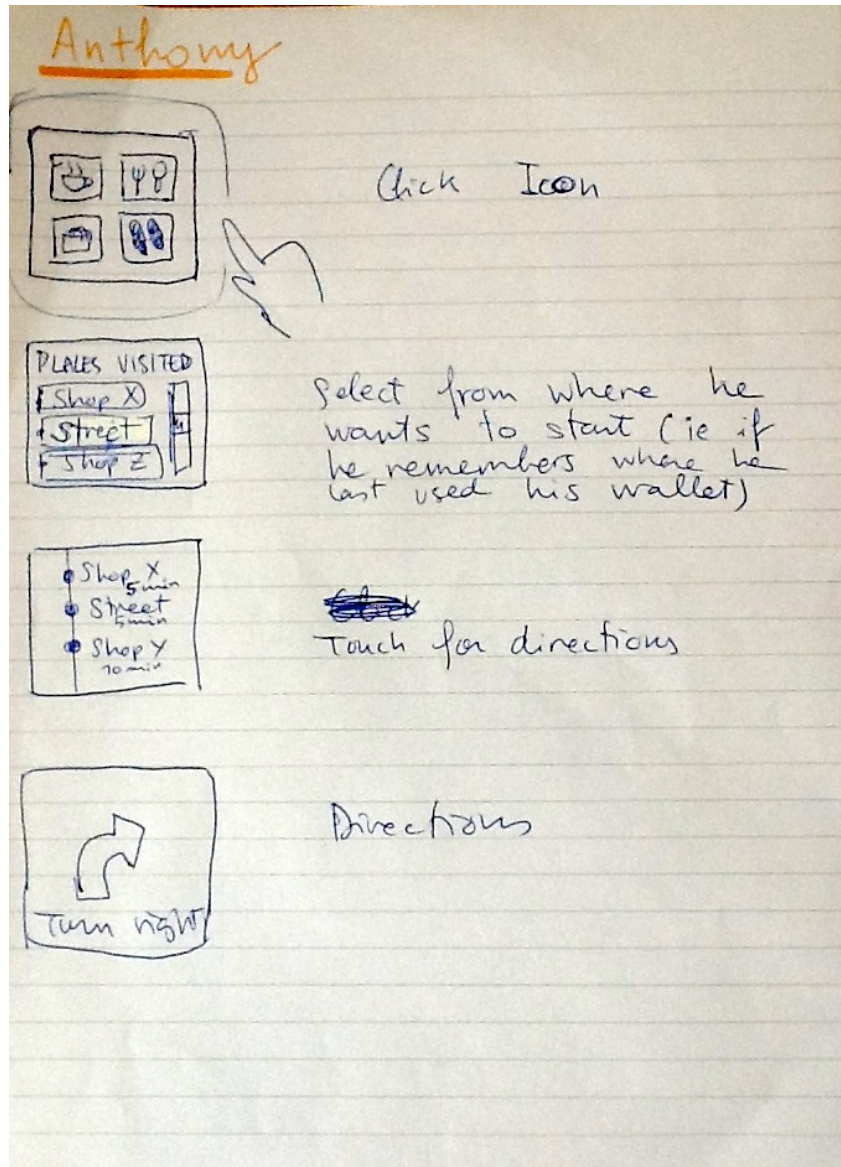 Anthony
Click Icon
PLACES VISITED
Shop X
Street
Shop Z
Select from where he
wants to start (ie if
he remembers where he
last used his wallet)
Shop X
5 min
Street
5 min
Shop Y
10 min
Touch for directions
Directions
Turn right